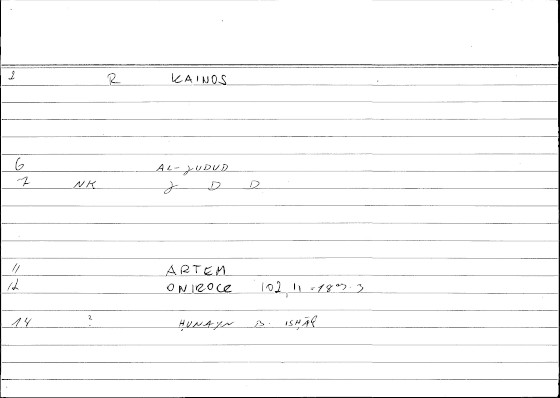 2 R KAINOS
6 AL-JUDUD
7 NK J D D
11 ARTEM
12 ONIROCR 102, 11
14 ? ḤUNAYN B. ISḤĀQ